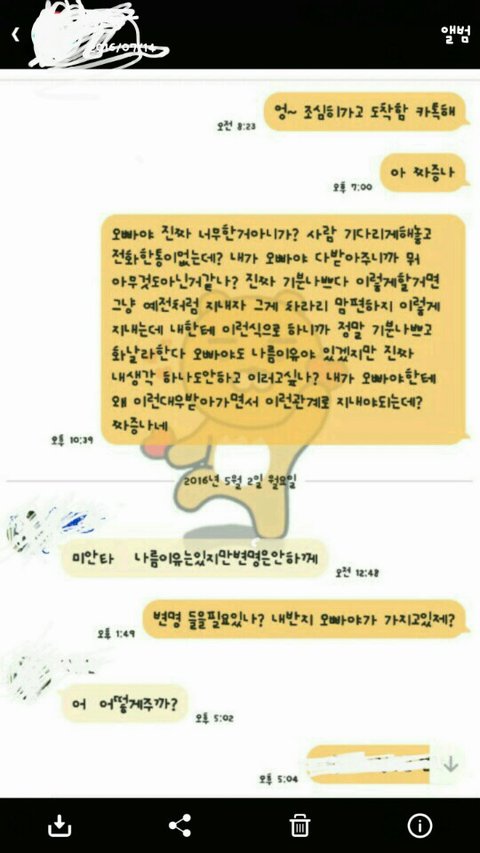 앨범
2016/07/14
엉~ 조심히가고 도착함 카톡해
오전 8:23
아 짜증나
오후 7:00
오빠야 진짜 너무한거아니가? 사람 기다리게해놓고
전화한통이없는데? 내가 오빠야 다받아주니까 뭐
아무것도아닌거같나? 진짜 기분나쁘다 이렇게할거면
그냥 예전처럼 지내자 그게 차라리 맘편하지 이렇게
지내는데 내한테 이런식으로 하니까 정말 기분나쁘고
화날라한다 오빠야도 나름이유야 있겠지만 진짜
내생각 하나도안하고 이러고싶나? 내가 오빠야한테
왜 이런대우받아가면서 이런관계로 지내야되는데?
짜증나네
오후 10:39
2016년 5월 2일 월요일
미안타 나름이유는있지만변명은안하께
오전 12:48
변명 들을필요있나? 내반지 오빠야가 가지고있제?
오후 1:49
어 어떻게주까?
오후 5:02
오후 5:04